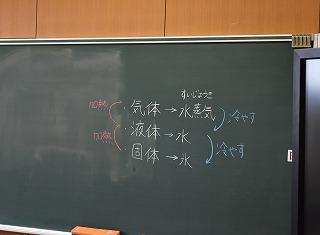 すいじょうき
加熱 気体→水蒸気 冷やす
加熱 液体→水
固体→氷 冷やす